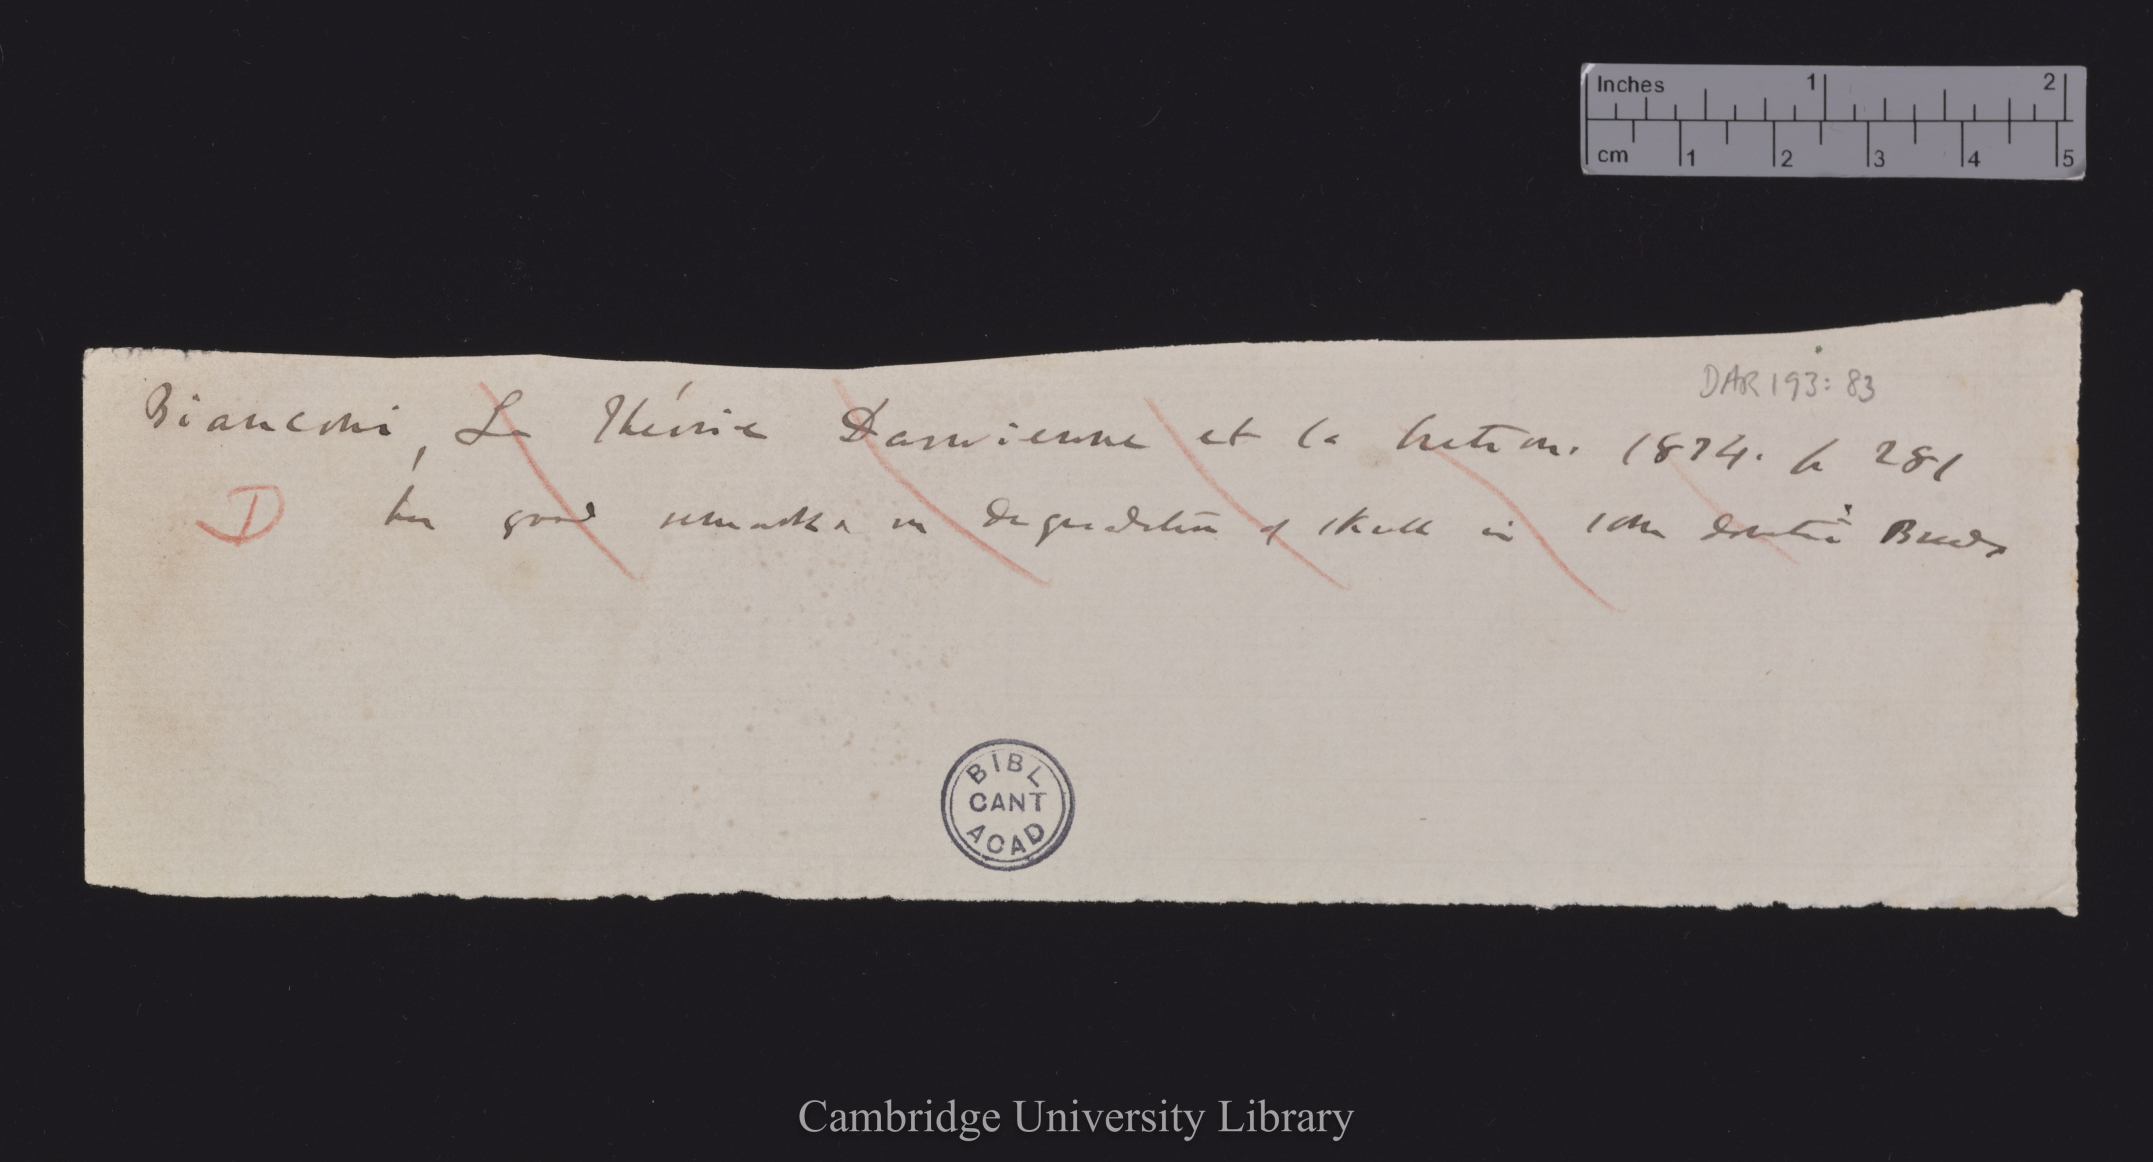 Inches 1 2
cm 1 2 3 4 5
DAR 193: 83
Bianconi, La Théorie Darwienne et la 1874. p 281
D good remarks on degradation of skull in some Breeds
BIBL
CANT
ACAD
Cambridge University Library